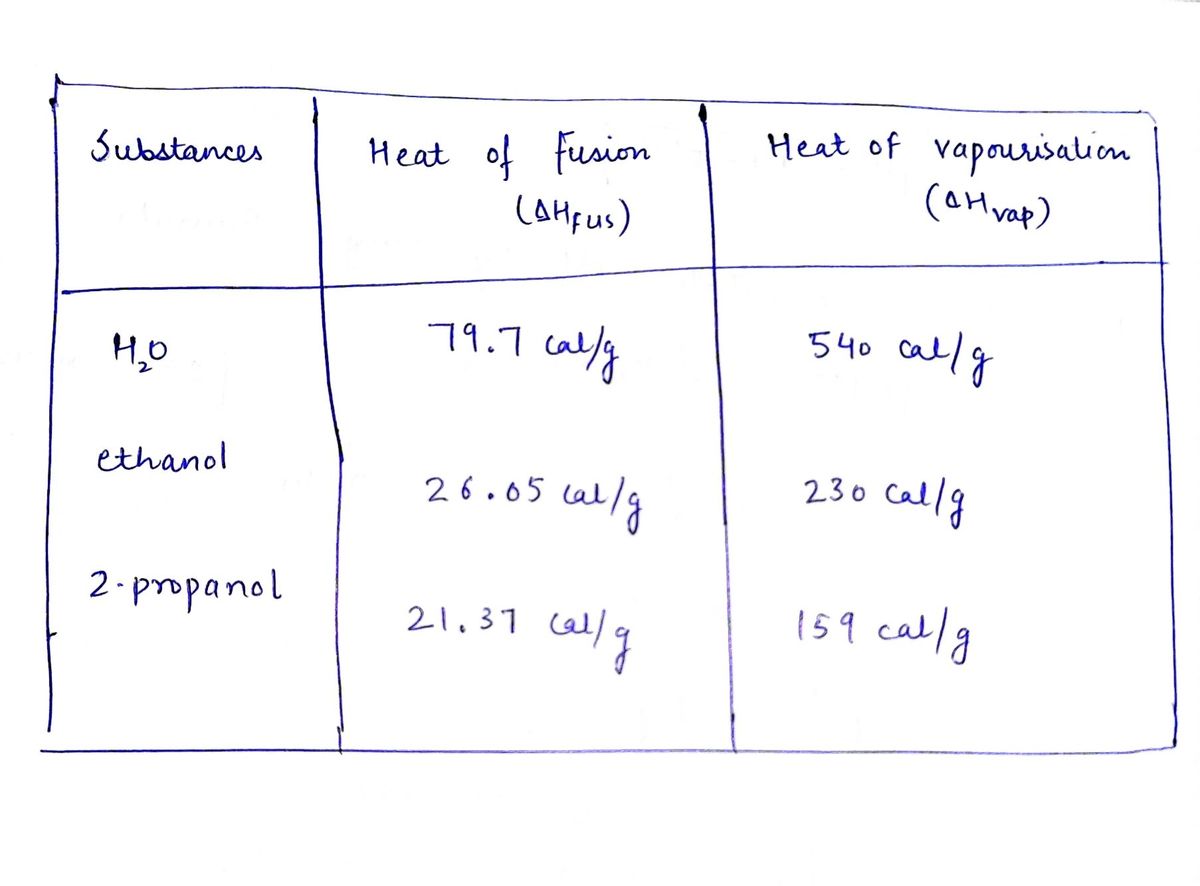 Substances Heat of fusion Heat of vapourisation
(ΔHfus) (ΔHvap)
H₂O 79.7 cal/g 540 cal/g
ethanol 26.05 cal/g 230 cal/g
2-propanol 21.37 cal/g 159 cal/g